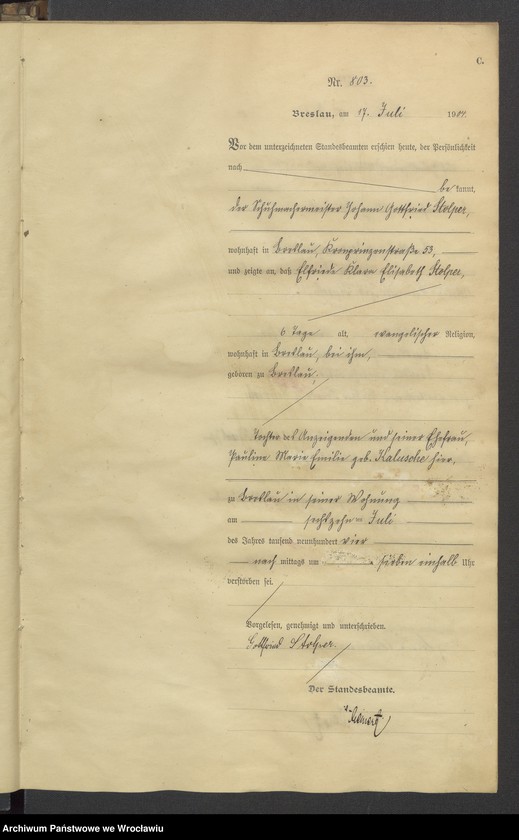 C.
Nr. 803.
Breslau, am 17. Juli 1904.
Vor dem unterzeichneten Standesbeamten erschien heute, der Persönlichkeit
nach
be kannt,
der Schuhmachermeister Johann Gottfried Stolper,
wohnhaft in Breslau, Kronprinzenstraße 53,
und zeigte an, daß Elfriede Klara Elisabeth Stolper,
6 Tage alt, evangelischer Religion,
wohnhaft in Breslau, bei ihm,
geboren zu Breslau,
Tochter des Anzeigenden und seiner Ehefrau,
Pauline Marie Emilie geb. Kalusche hier,
zu Breslau in seiner Wohnung
am sechszehn n Juli
des Jahres tausend neunhundert vier
nach mittags um sieben einhalb Uhr
verstorben sei.
Vorgelesen, genehmigt und unterschrieben.
Gottfried Stolper.
Der Standesbeamte.
Archiwum Państwowe we Wrocławiu